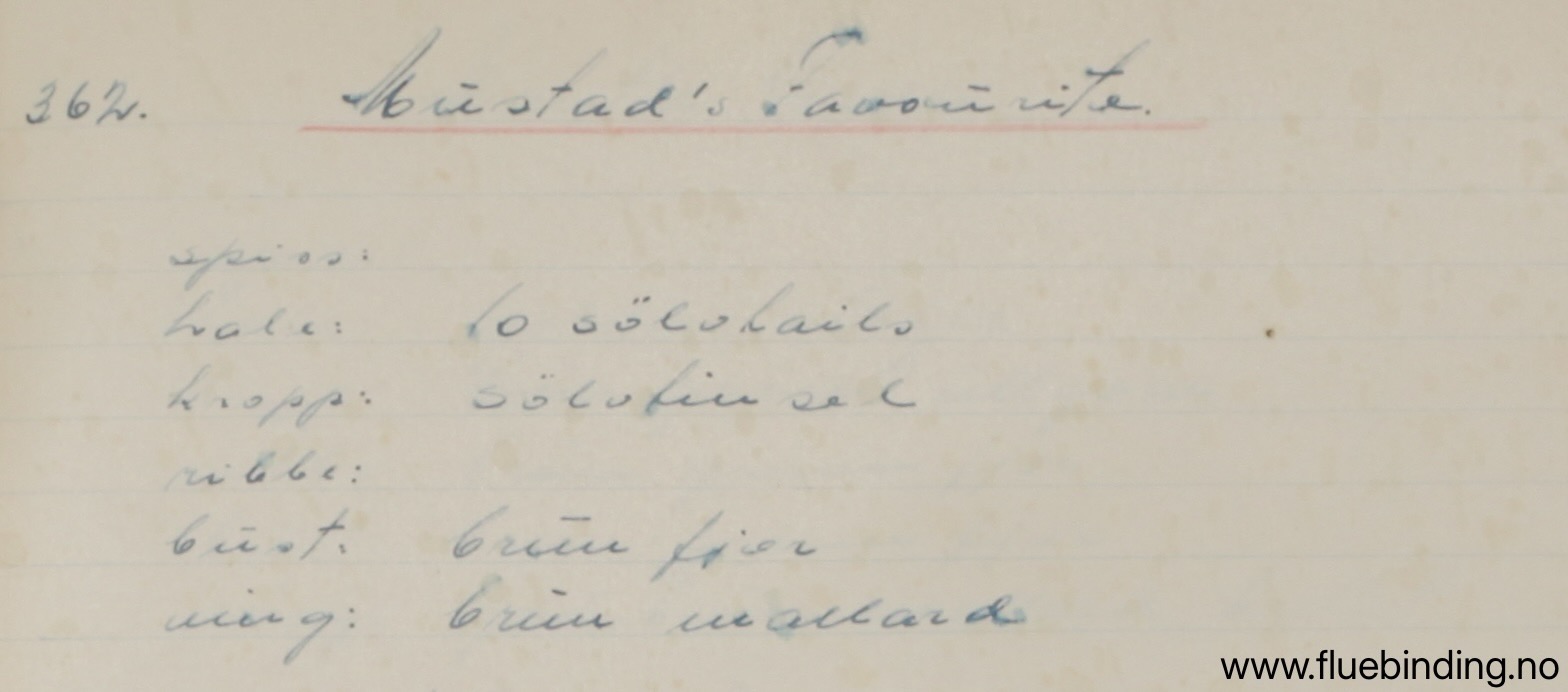 362. Mustad's Favourite.
spiss:
hale: to sölvtails
kropp: sölvtinsel
ribbe:
bust: brun fjær
ving: brun mallard
www.fluebinding.no